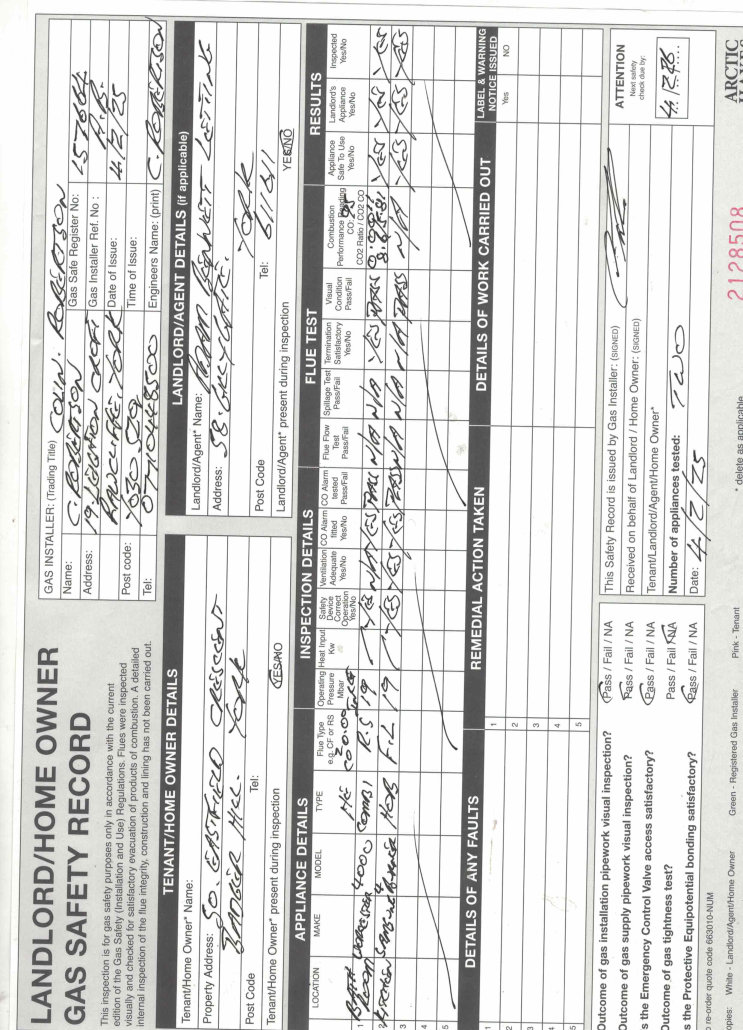 LANDLORD/HOME OWNER
GAS SAFETY RECORD
This inspection is for gas safety purposes only in accordance with the current
edition of the Gas Safety (Installation and Use) Regulations. Flues were inspected
visually and checked for satisfactory evacuation of products of combustion. A detailed
internal inspection of the flue integrity, construction and lining has not been carried out.
GAS INSTALLER: (Trading Title) COLIN. ROBERTSON
Name: C. ROBERTSON Gas Safe Register No: 157664
Address: 19 LEIGHTON CROFT Gas Installer Ref. No :
RAWCLIFFE. YORK Date of Issue: 4/2/25
Post code: YO30 5 Time of Issue:
Tel: Engineers Name: (print) C. ROBERTSON
TENANT/HOME OWNER DETAILS
Tenant/Home Owner* Name:
Property Address: 50. EASTFIELD CRESCENT
BADGER HILL. YORK
Post Code Tel:
Tenant/Home Owner* present during inspection YES/NO
LANDLORD/AGENT DETAILS (if applicable)
Landlord/Agent* Name: ADAM BENNETT LETTING
Address: 58. YORK
Post Code Tel: 611011
Landlord/Agent* present during inspection YES/NO
APPLIANCE DETAILS INSPECTION DETAILS FLUE TEST RESULTS
LOCATION MAKE MODEL TYPE Flue Type e.g. CF or RS Operating Pressure Mbar Heat Input Kw Safety Device Correct Operation Yes/No Ventilation Adequate Yes/No CO Alarm fitted Yes/No CO Alarm tested Pass/Fail Flue Flow Test Pass/Fail Spillage Test Pass/Fail Termination Satisfactory Yes/No Visual Condition Pass/Fail Combustion Performance Reading CO: CO2 Ratio / CO2 CO Appliance Safe To Use Yes/No Landlord's Appliance Yes/No Inspected Yes/No
1 BATH ROOM WORCESTER 4000 HE COMBI R.S 19 YES N/A YES PASS N/A N/A YES PASS YES YES YES
2 KITCHEN HOB F.L 19 YES YES YES PASS N/A N/A N/A PASS N/A YES YES YES
3
4
5
DETAILS OF ANY FAULTS REMEDIAL ACTION TAKEN DETAILS OF WORK CARRIED OUT LABEL & WARNING NOTICE ISSUED
Yes NO
1 1
2 2
3 3
4 4
5 5
Outcome of gas installation pipework visual inspection? Pass / Fail / NA
Outcome of gas supply pipework visual inspection? Pass / Fail / NA
s the Emergency Control Valve access satisfactory? Pass / Fail / NA
Outcome of gas tightness test? Pass / Fail / NA
s the Protective Equipotential bonding satisfactory? Pass / Fail / NA
This Safety Record is issued by Gas Installer: (SIGNED)
Received on behalf of Landlord / Home Owner: (SIGNED)
Tenant/Landlord/Agent/Home Owner*
Number of appliances tested: TWO
Date: 4/2/25
ATTENTION
Next safety
check due by:
4/2/26
o re-order quote code 663010-NUM
opies: White - Landlord/Agent/Home Owner Green - Registered Gas Installer Pink - Tenant
* delete as applicable
2128508
ARCTIC